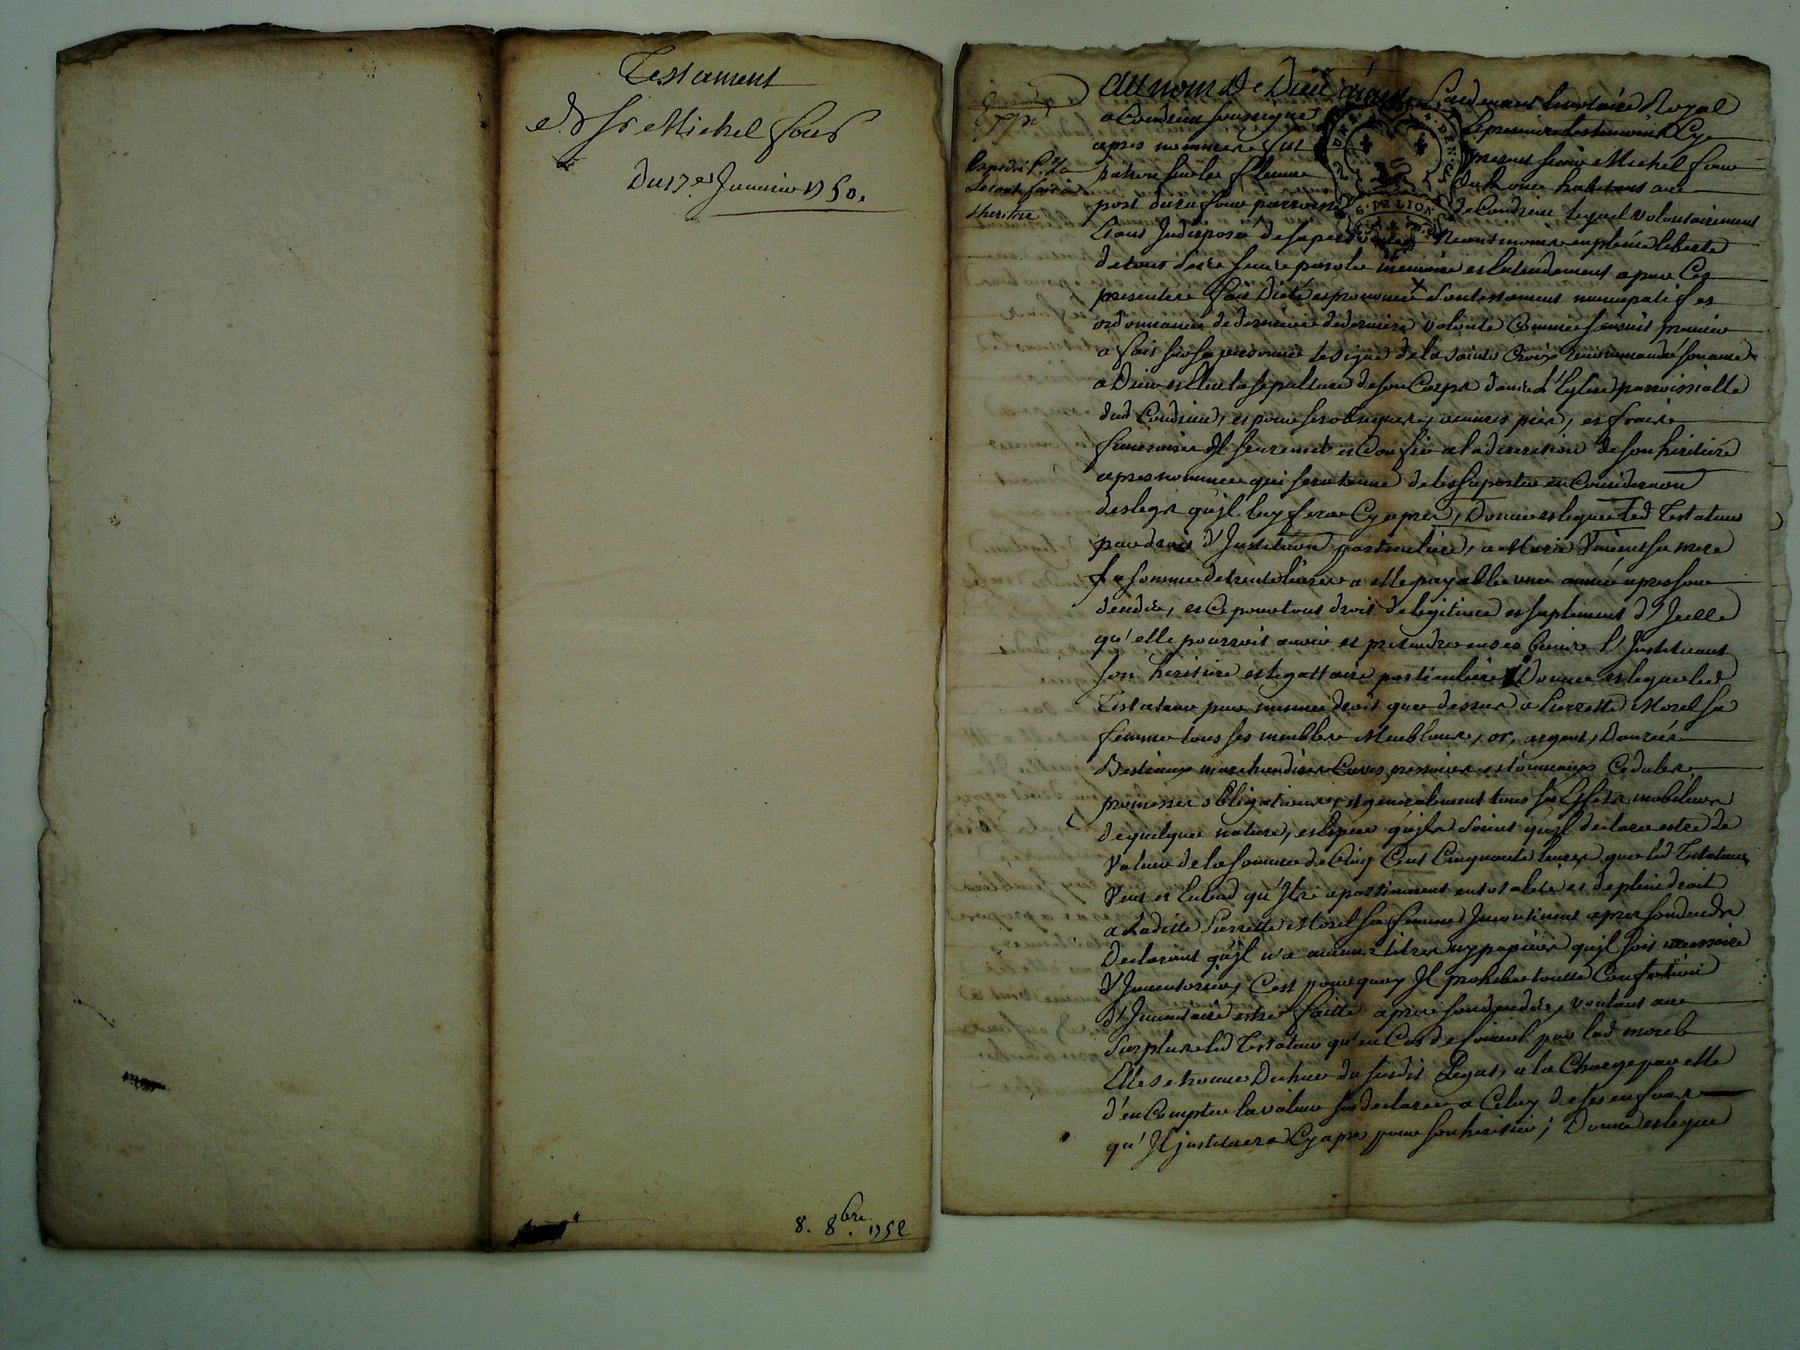 Testament
de Sr Michel
Du 17e Janvier 1750.
8. 8bre. 1752
Au nom de Dieu Royal
a Condrieu soussigné
apres nommes fut present Michel
patron sur le fleuve du habitant au
port parroisse de Condrieu lequel volontairement
Etant Indisposé de sa personne Neantmoins en pleine liberté
de tous ses sens parole memoire et Entendement apar Ces
presentes fait Dicté et prononcé Son testament nuncupatif et
ordonnance de derniere de derniere volonté Comme sensuit premier
a fait sur sa personne le signe de la sainte Croix recommandé son ame
a Dieu Elu la sepulture de son Corps dans L'Eglise parroissialle
dud Condrieu, et pour ses obseques, œuvres pies, et frais
funeraires Il sen remet et Confie a la discretion de son heritiere
apres nommée qui sera tenue de les suporter en Consideration
des legs qu'jl luy fera Cy apres, Donne et legue led Testateur
par droit d'Institution particuliere, a Marie Vincent sa mere
la somme de trente livres a elle payable une année apres son
decedz, et Ce pour tous droit de legitime et suplement d'Icelle
qu'elle pourroit avoir et pretendre en ses biens L'Instituant
son heritiere et legattaire particuliere Donne et legue led
Testateur par mesme droit que dessus a Pierrette Morel sa
femme tous ses meubles Meublans, or, argent, Denrées
Bestiaux marchandises Cuves pressoirs et tonneaux Cedules
promesses obligations, et generalement tous ses Effets mobiliers
de quelque nature, et Espece qu'jls soient qu'jl declare estre de
valeur de la somme de Cinq Cent Cinquante livres que led Testateur
Veut et Entend qu'Ils apartiennent en totalité et de plein droit
a Laditte Pierrette Morel sa femme Incontinent apres son decedz
Declarant qu'jl n'a aucuns titres ny papiers qu'jl soit necessaire
d'Inventorier, C'est pourquoy Il prohibe toutte Confection
d'Inventaire estre faitte apres son decedz, voulant au
surplus led Testateur qu'en Cas de par lad morel
Elle Dechue du susdit Legat, a la Charge par elle
d'en Compter la valeur sus declarée a Celuy de ses enfans
qu'Il jnstituera Cy apres pour son heritier; Donne et legue